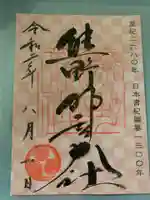 皇紀二六八〇年 日本書紀編纂一三〇〇年
熊野神社
令和二年 八月一日